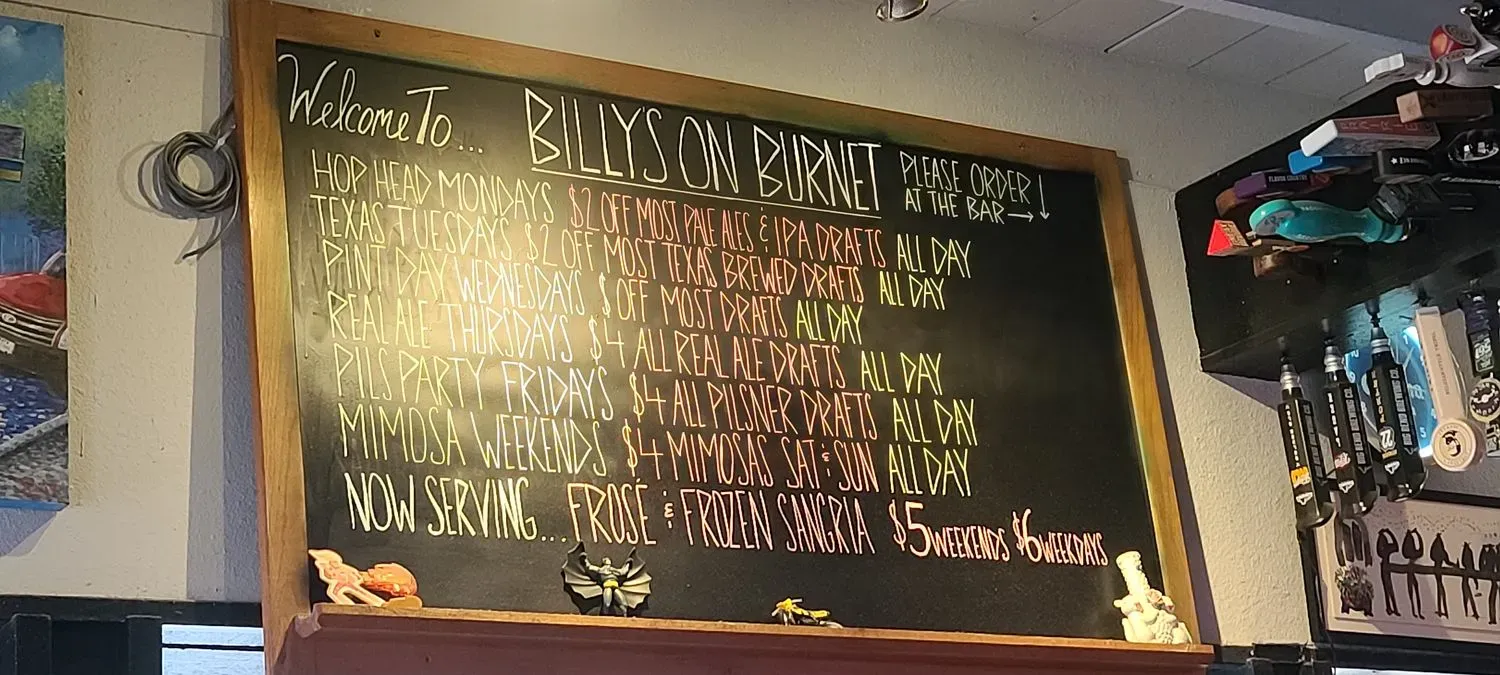 Welcome To... BILLY'S ON BURNET
PLEASE ORDER ↓
AT THE BAR → ↓
HOP HEAD MONDAYS $2 OFF MOST PALE ALES & IPA DRAFTS ALL DAY
TEXAS TUESDAYS $2 OFF MOST TEXAS BREWED DRAFTS ALL DAY
PINT DAY WEDNESDAYS $ OFF MOST DRAFTS ALL DAY
REAL ALE THURSDAYS $4 ALL REAL ALE DRAFTS ALL DAY
PILS PARTY FRIDAYS $4 ALL PILSNER DRAFTS ALL DAY
MIMOSA WEEKENDS $4 MIMOSAS SAT & SUN ALL DAY
NOW SERVING... FROSÉ & FROZEN SANGRIA $5 WEEKENDS $6 WEEKDAYS
FLAVOR COUNTRY
BIG BEND BREWING CO.
22